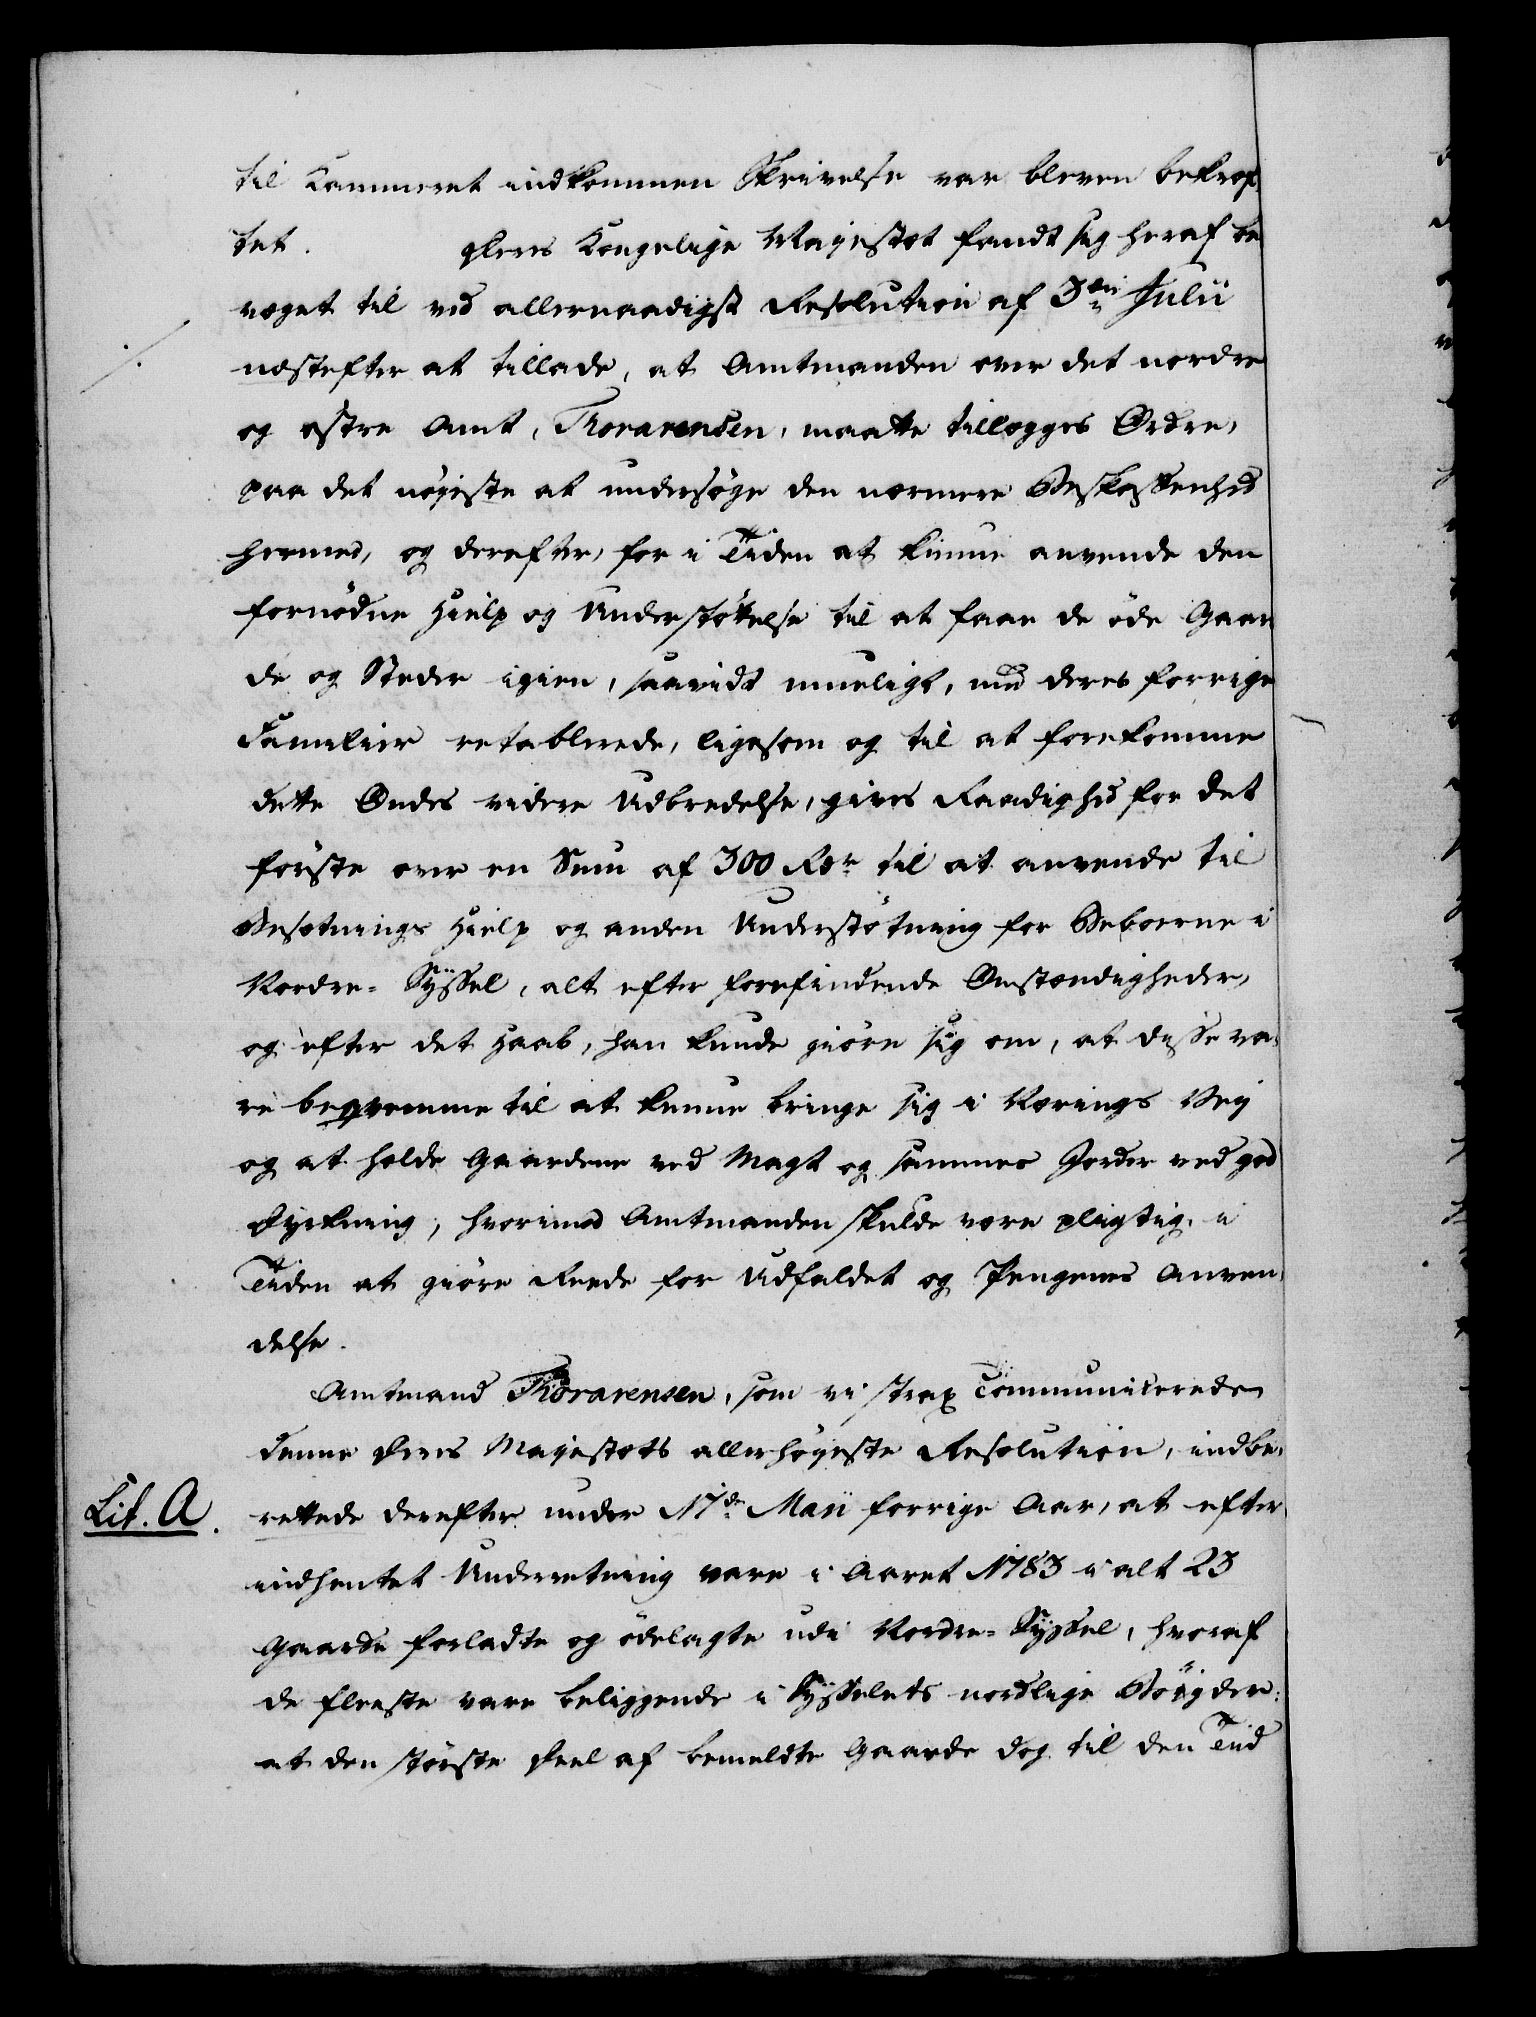 til Kammeret indkommen Skrivelse var bleven bekræf-
tet. Deres Kongelige Majestæt fandt sig heraf be
væget til ved allernaadigst Resolution af 3die Julii
næstefter at tillade, at Amtmanden over det nordre
og østre Amt, Thorarensen, maatte tillægges Ordre,
paa det nøjeste at undersøge den nærmere Beskaffenhed
hermed, og derefter, for i Tiden at kunne anvende den
fornødne Hielp og Understøttelse til at faae de øde Gaar
de og Steder igien, saavidt mueligt, med deres forrige
Familier retablerede, ligesom og til at forekomme
dette Ondes videre Udbredelse, gives Raadighed for det
første over en Sum af 300 Rdr til at anvende til
Besætnings Hielp og anden Understøtning for Beboerne i
Nordre-Syssel, alt efter forefindende Omstændigheder,
og efter det Haab, han kunde giøre sig om, at disse va-
re beqvemme til at kunne bringe sig i Nærings Vej
og at holde Gaardene ved Magt og sammes Jorder ved god
Dyrkning, hvorimod Amtmanden skulde være pligtig i
Tiden at giøre Rede for Udfaldet og Pengenes Anven-
delse.
Amtmand Thorarensen, som vi strax communicerede
denne Deres Majestæts allerhøjeste Resolution, indbe-
Lit. A. rettede derefter under 17de Maji forrige Aar, at efter
indhentet Underretning vare i Aaret 1783 i alt 23
Gaarde forladte og ødelagte udi Nordre-Syssel, hvoraf
de fleeste vare beliggende i Sysselets nordlige Bøigder:
at den største Deel af bemeldte Gaarde dog til den Tiid